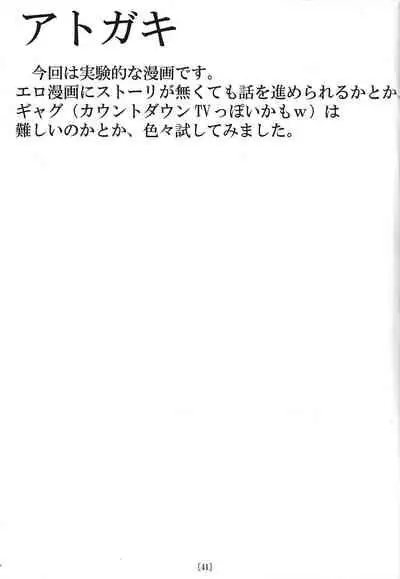 アトガキ
今回は実験的な漫画です。
エロ漫画にストーリが無くても話を進められるかとか
ギャグ（カウントダウンTVっぽいかもｗ）は
難しいのかとか、色々試してみました。
[41]